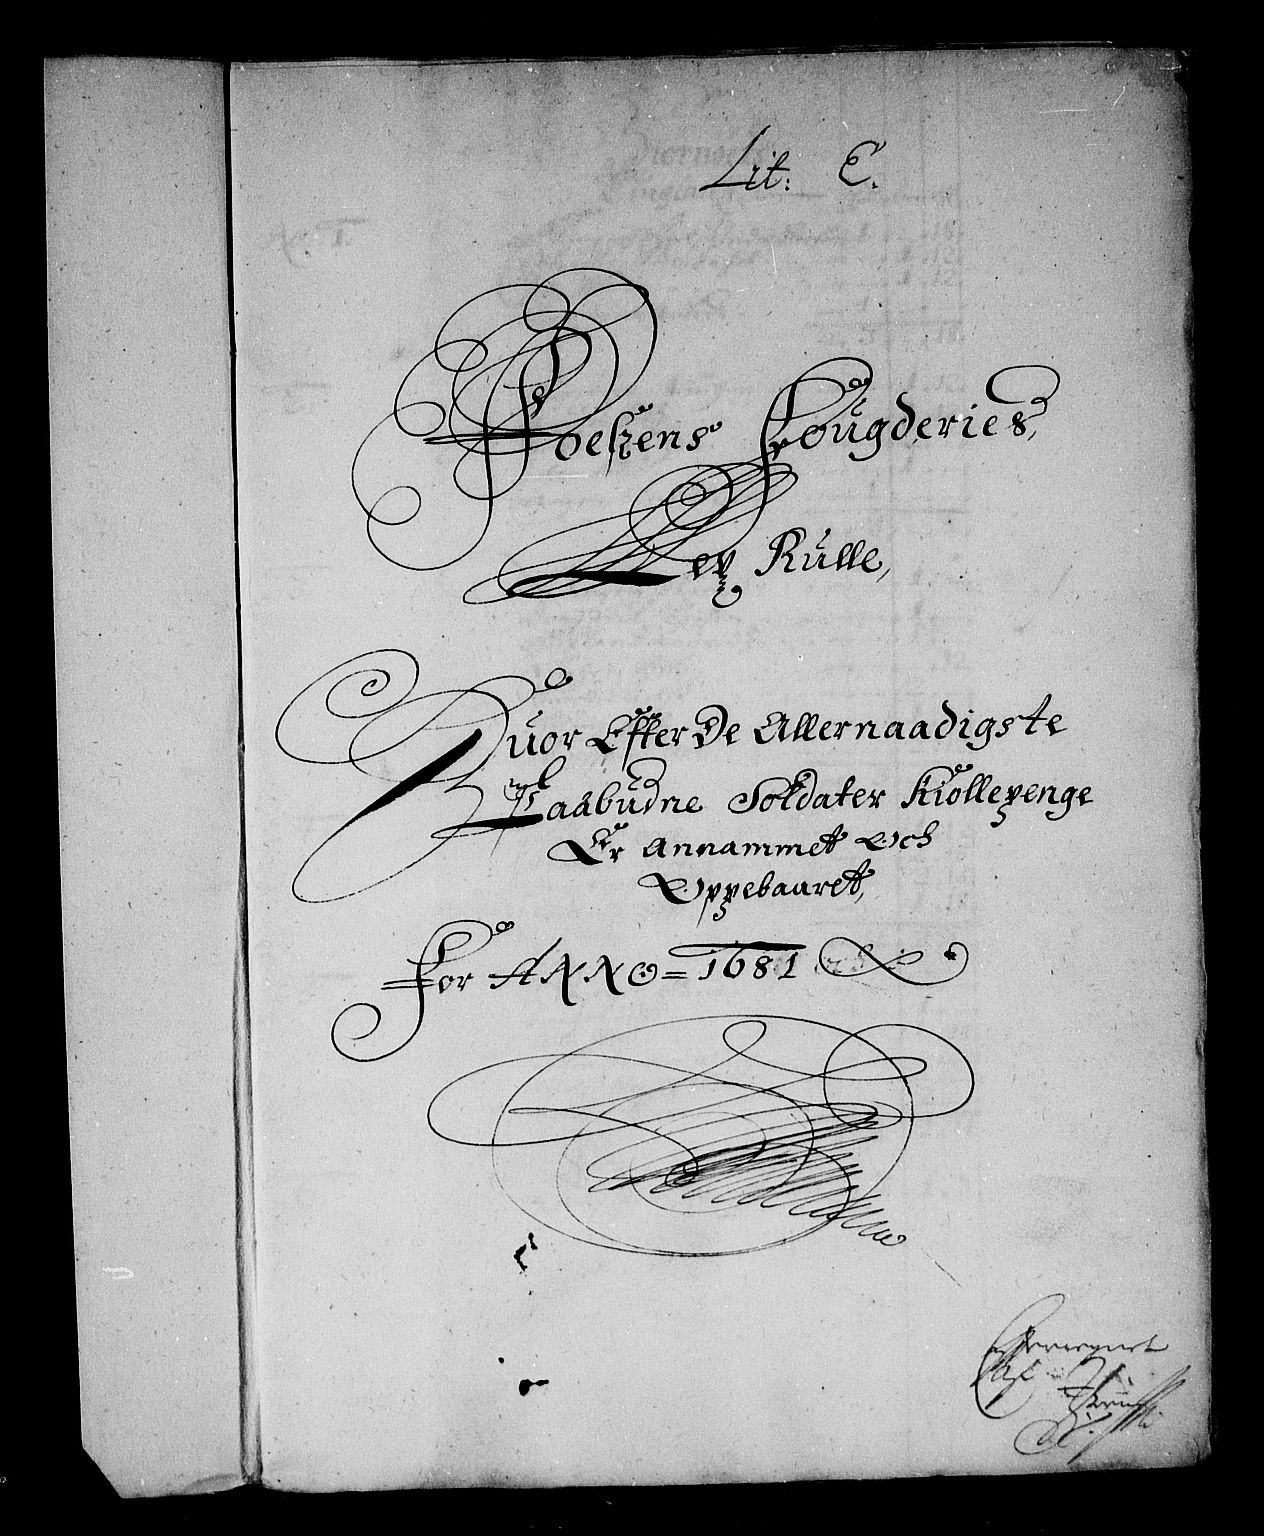 Lit: E.
Foeszens Fougderies,
Leÿ Rulle,
Huor Efter De Allernaadigste
Paabudne Soldater Kiollepenge
Er Annammet Och
Oppebaaret,
For ANNO = 1681